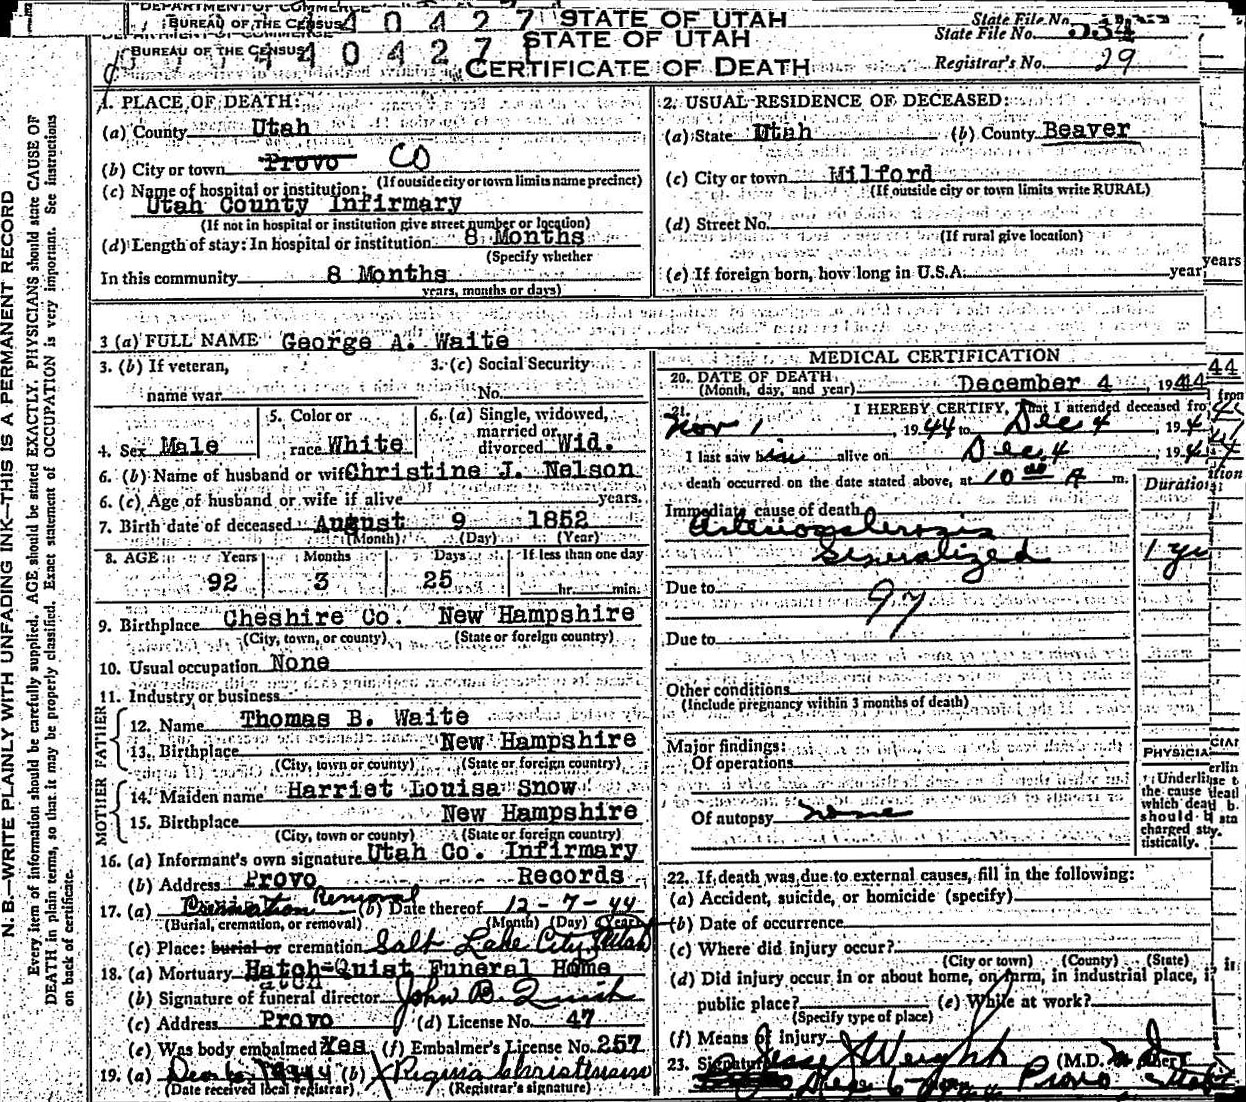 DEPARTMENT OF COMMERCE
BUREAU OF THE CENSUS
4 0 4 2 7
STATE OF UTAH
State File No.
BUREAU OF THE CENSUS
4 0 4 2 7
STATE OF UTAH
CERTIFICATE OF DEATH
State File No. 534
Registrar's No. 29
N. B.—WRITE PLAINLY WITH UNFADING INK—THIS IS A PERMANENT RECORD
Every item of information should be carefully supplied. AGE should be stated EXACTLY. PHYSICIANS should state CAUSE OF
DEATH in plain terms, so that it may be properly classified. Exact statement of OCCUPATION is very important. See instructions
on back of certificate.
1. PLACE OF DEATH:
(a) County Utah
(b) City or town Provo CO
(If outside city or town limits name precinct)
(c) Name of hospital or institution:
Utah County Infirmary
(If not in hospital or institution give street number or location)
(d) Length of stay: In hospital or institution 8 Months
(Specify whether
In this community 8 Months
years, months or days)
2. USUAL RESIDENCE OF DECEASED:
(a) State Utah (b) County Beaver
(c) City or town Milford
(If outside city or town limits write RURAL)
(d) Street No.
(If rural give location)
(e) If foreign born, how long in U.S.A. year
years
3 (a) FULL NAME George A. Waite
3. (b) If veteran,
name war
3. (c) Social Security
No.
4. Sex Male
5. Color or
race White
6. (a) Single, widowed,
married or
divorced Wid.
6. (b) Name of husband or wife Christine J. Nelson
6. (c) Age of husband or wife if alive years.
7. Birth date of deceased August 9 1852
(Month) (Day) (Year)
8. AGE Years Months Days If less than one day
92 3 25 hr. min.
9. Birthplace Cheshire Co. New Hampshire
(City, town, or county) (State or foreign country)
10. Usual occupation None
11. Industry or business
FATHER
12. Name Thomas B. Waite
13. Birthplace New Hampshire
(City, town or county) (State or foreign country)
MOTHER
14. Maiden name Harriet Louisa Snow
15. Birthplace New Hampshire
(City, town or county) (State or foreign country)
16. (a) Informant's own signature Utah Co. Infirmary
(b) Address Provo Records
17. (a) Cremation Removal (b) Date thereof 12-7-44
(Burial, cremation, or removal) (Month) (Day) (Year)
(c) Place: burial or cremation Salt Lake City, Utah
18. (a) Mortuary Hatch-Quist Funeral Home
(b) Signature of funeral director John B. Quist
(c) Address Provo (d) License No. 47
(e) Was body embalmed Yes (f) Embalmer's License No. 257
19. (a) (b) Regina Christensen
(Date received local registrar) (Registrar's signature)
MEDICAL CERTIFICATION
20. DATE OF DEATH
(Month, day, and year) December 4, 1944
44
21. I HEREBY CERTIFY, That I attended deceased from
Nov 1, 1944 to Dec 4, 194
I last saw him alive on Dec 4, 194
death occurred on the date stated above, at 10 00 A m.
Duration
Immediate cause of death
Arteriosclerosis
Generalized 1 yr
Due to 97
Due to
Other conditions
(Include pregnancy within 3 months of death)
Major findings:
Of operations
Of autopsy none
PHYSICIAN
Underline
the cause
which death
should b
charged sta-
tistically.
22. If death was due to external causes, fill in the following:
(a) Accident, suicide, or homicide (specify)
(b) Date of occurrence
(c) Where did injury occur?
(City or town) (County) (State)
(d) Did injury occur in or about home, on farm, in industrial place, i
public place? (e) While at work?
(Specify type of place)
(f) Means of injury
23. Signature Jesse J Weight (M.D.
Dec 6 Provo Utah